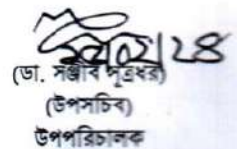 (ডা. সঞ্জীব সূত্রধর)
(উপসচিব)
উপপরিচালক